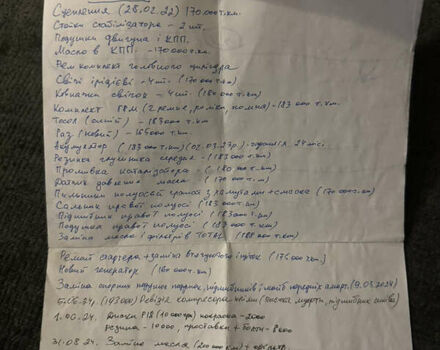 Сцеплення (28.02.22) 170 000 т.км.
Стойки стабілізатора - 2 шт.
Подушки двигуна і КПП.
Масло в КПП - 170 000 т.км.
Рем комплект головного циліндра
Свічі ірідієві - 4 шт. (170 000 т.км)
Ковпачки свічок - 4 шт. (180 000 т.км)
Комплект ГРМ (2 ремня, роліки, помпа) - 183 000 т.км.
Тосол (олит) - 183 000 т.км
Раз (новий) - 165 000 т.км.
Акумулятор (183 000 т.км) (02.03.23р.) - гарантія 24 міс.
Резинка глушника середня - (183 000 т.км)
Промивка каталізатора - (180 000 т.км)
Датчик давления масла - (170 000 т.км)
Пильники полуосей гранат з хомутами + смазка (170 000 т.км)
Сальник правої полуосі (183 000 т.км)
Підшипник правої полуосі (183 000 т.км)
Подушка правої полуосі (183 000 т.км)
Заміна масла і фільтрів TOTAL (188 000 т.км)
Ремонт стартера + заміна втягуючого і щіток (176 000 т.км.)
Новий генератор (180 000 т.км)
Заміна опорних подушок, підшипників і амортиз. (9.03.2024)
(198 000) Ревізія компресора кліми
1.06.24. Диски R18 покраска - 2000
резина - 10 000, проставки + болти - 8000
31.08.24. Заміна масла (200 000 км) + фільтр.